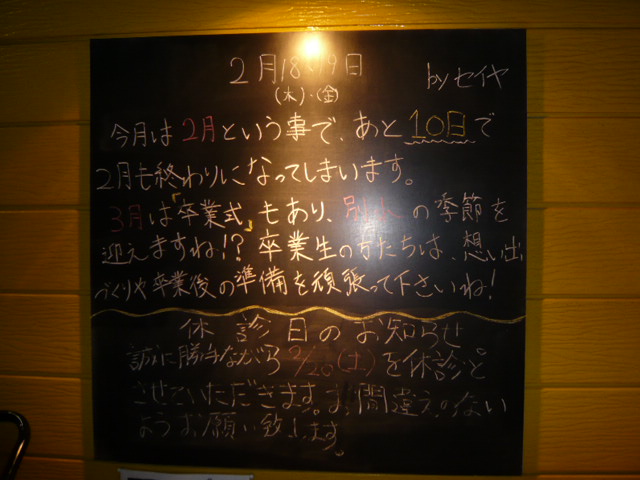 2月18・19日 byセイヤ
(木)・(金)
今月は2月という事で、あと10日で
2月も終わりになってしまいます。
3月は「卒業式」もあり、別れの季節を
迎えますね!?卒業生の方たちは、想い出
づくりや卒業後の準備を頑張って下さいね!
休診日のお知らせ
誠に勝手ながら2/20(土)を休診と
させていただきます。お間違えのない
ようお願い致します。